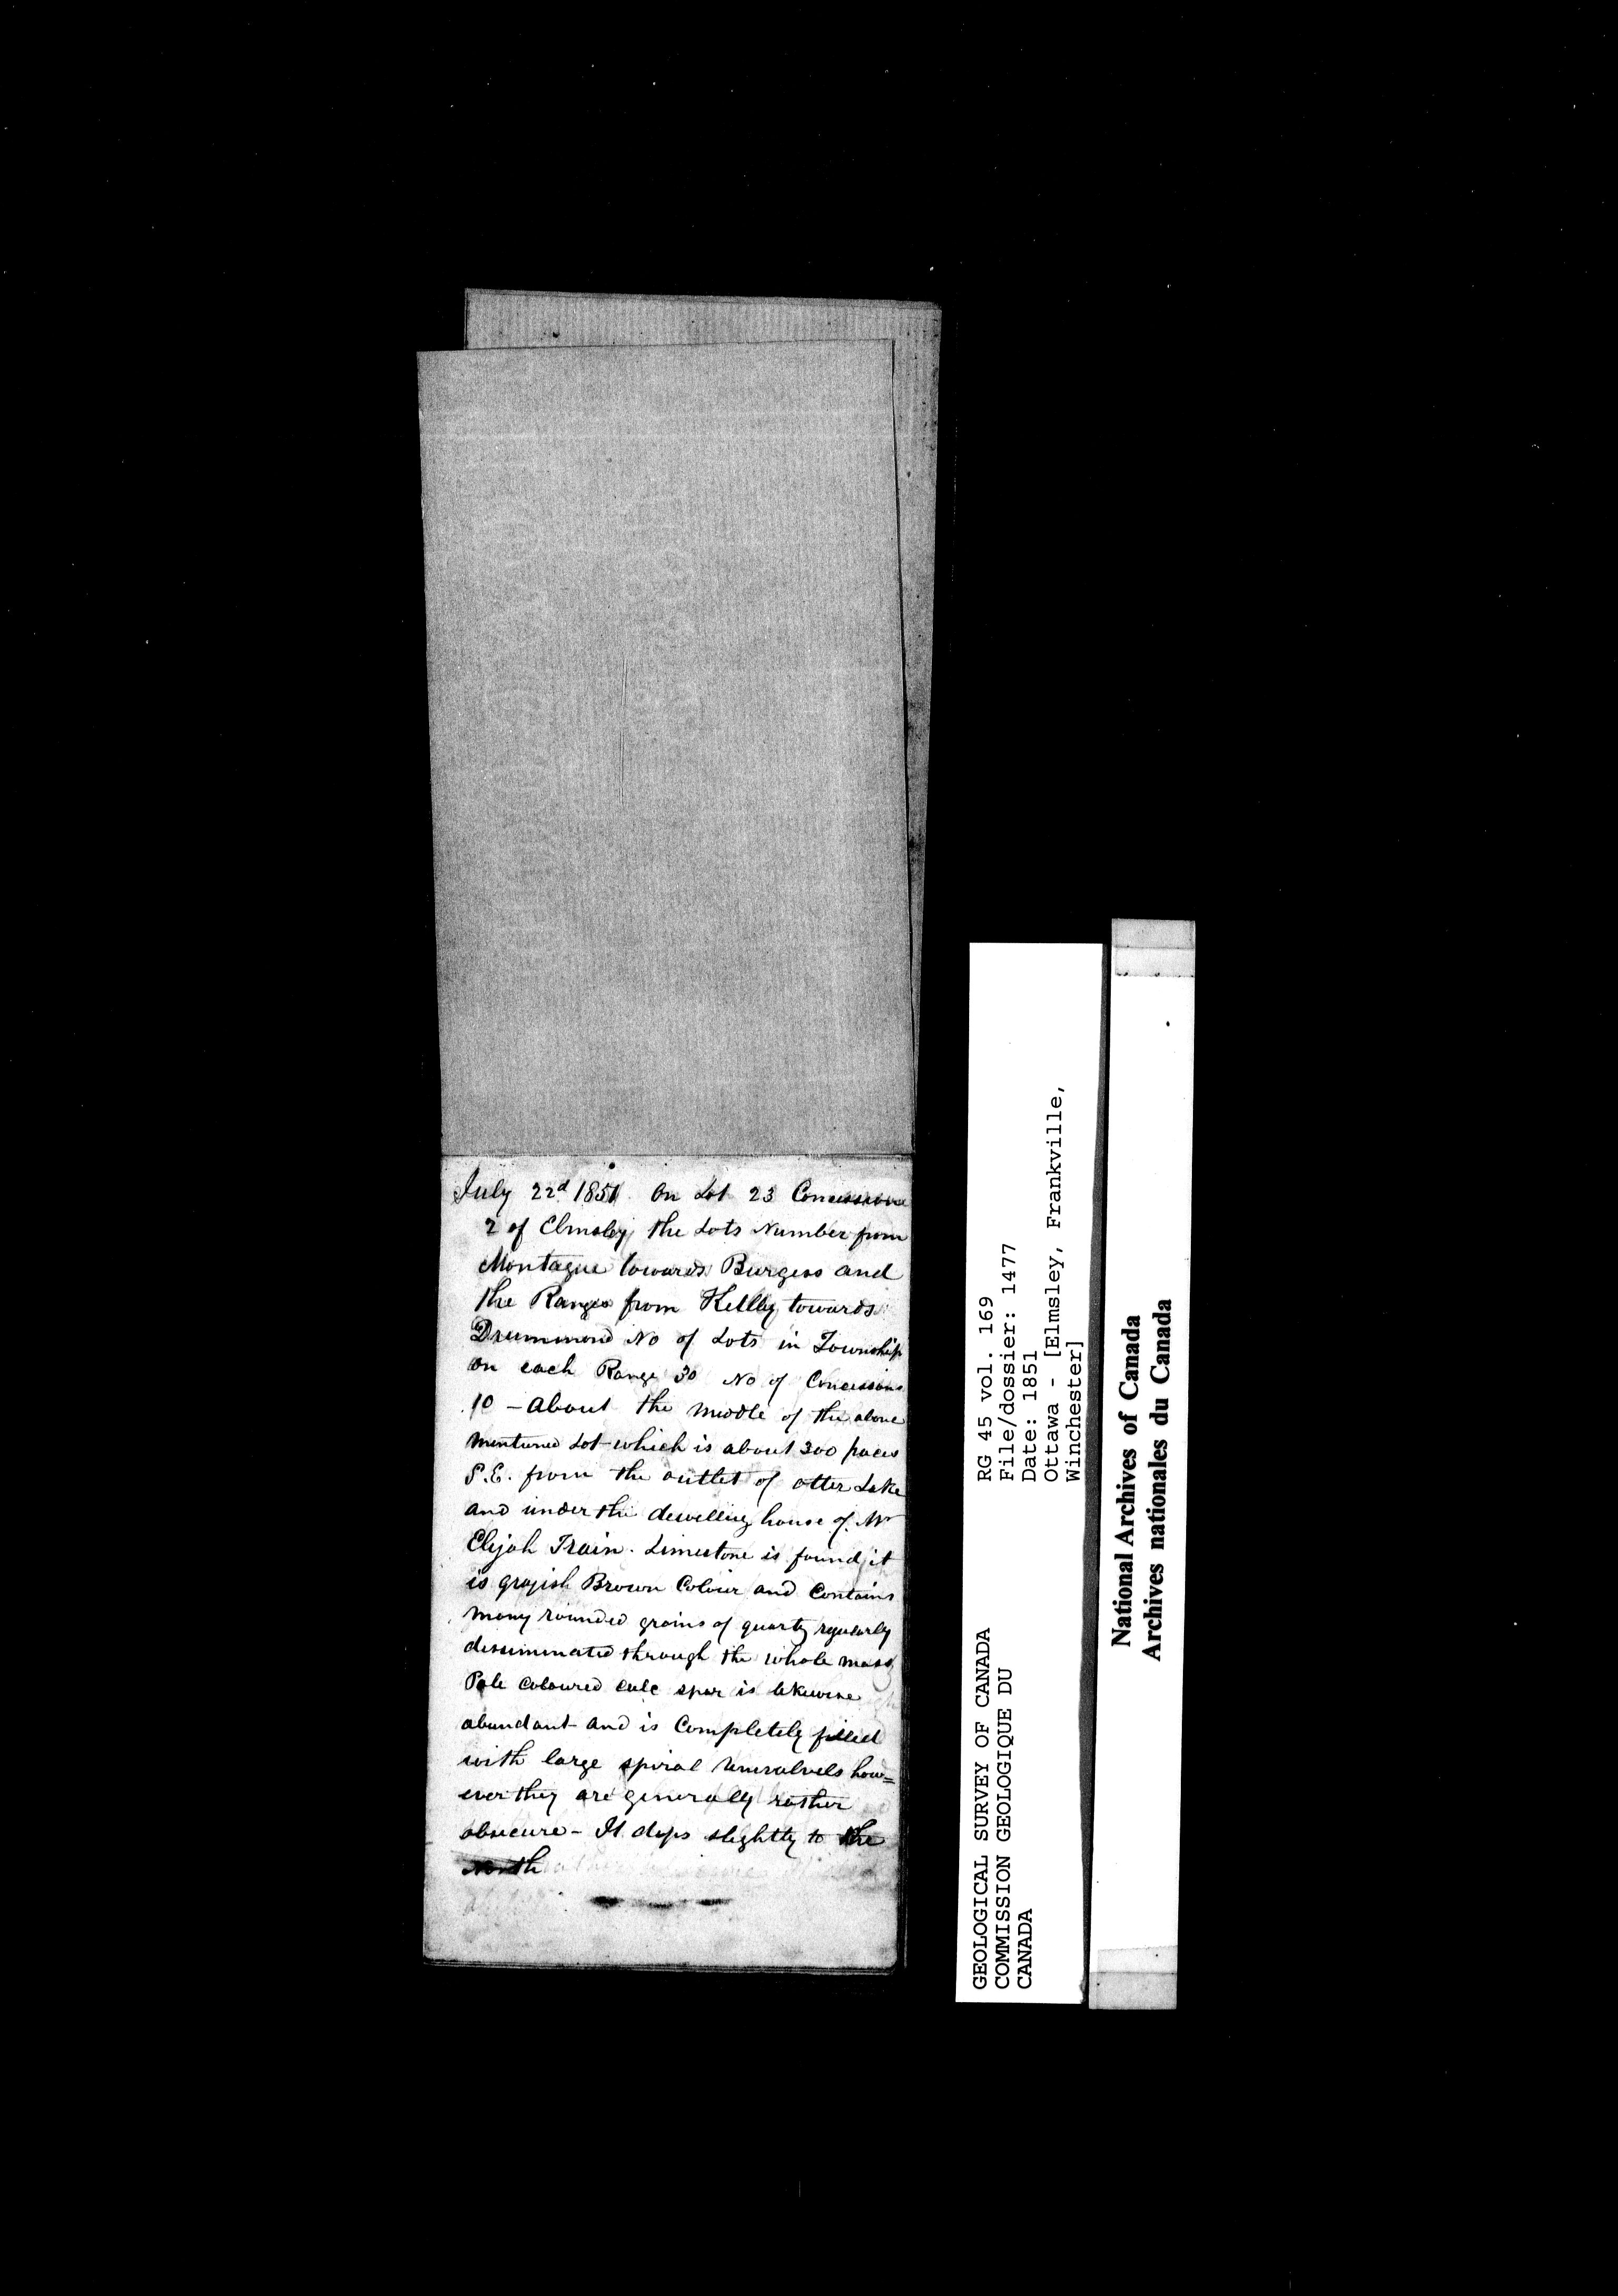 July 22d 1851 On Lot 23 Concession
2 of Elmsley, the Lots Number from
Montague towards Burgess and
the Ranges from Kitley towards
Drummond No of Lots in Township
on each Range 30 No of Concessions
10 - About the middle of the above
mentioned Lot which is about 300 paces
S.E. from the outlet of otter Lake
and under the dewelling house of Mr
Elijah Train. Limestone is found, it
is grayish Brown Colour and Contains
many rounded grains of quartz regularly
desseminated through the whole mass
Pale coloured calc spar is likewise
abundant and is Completely filled
with large spiral Univalvels how=
ever they are generally rather
obscure - It dips slightly to the
North
RG 45 vol. 169
File/dossier: 1477
Date: 1851
Ottawa - [Elmsley, Frankville,
Winchester]
GEOLOGICAL SURVEY OF CANADA
COMMISSION GEOLOGIQUE DU
CANADA
National Archives of Canada
Archives nationales du Canada